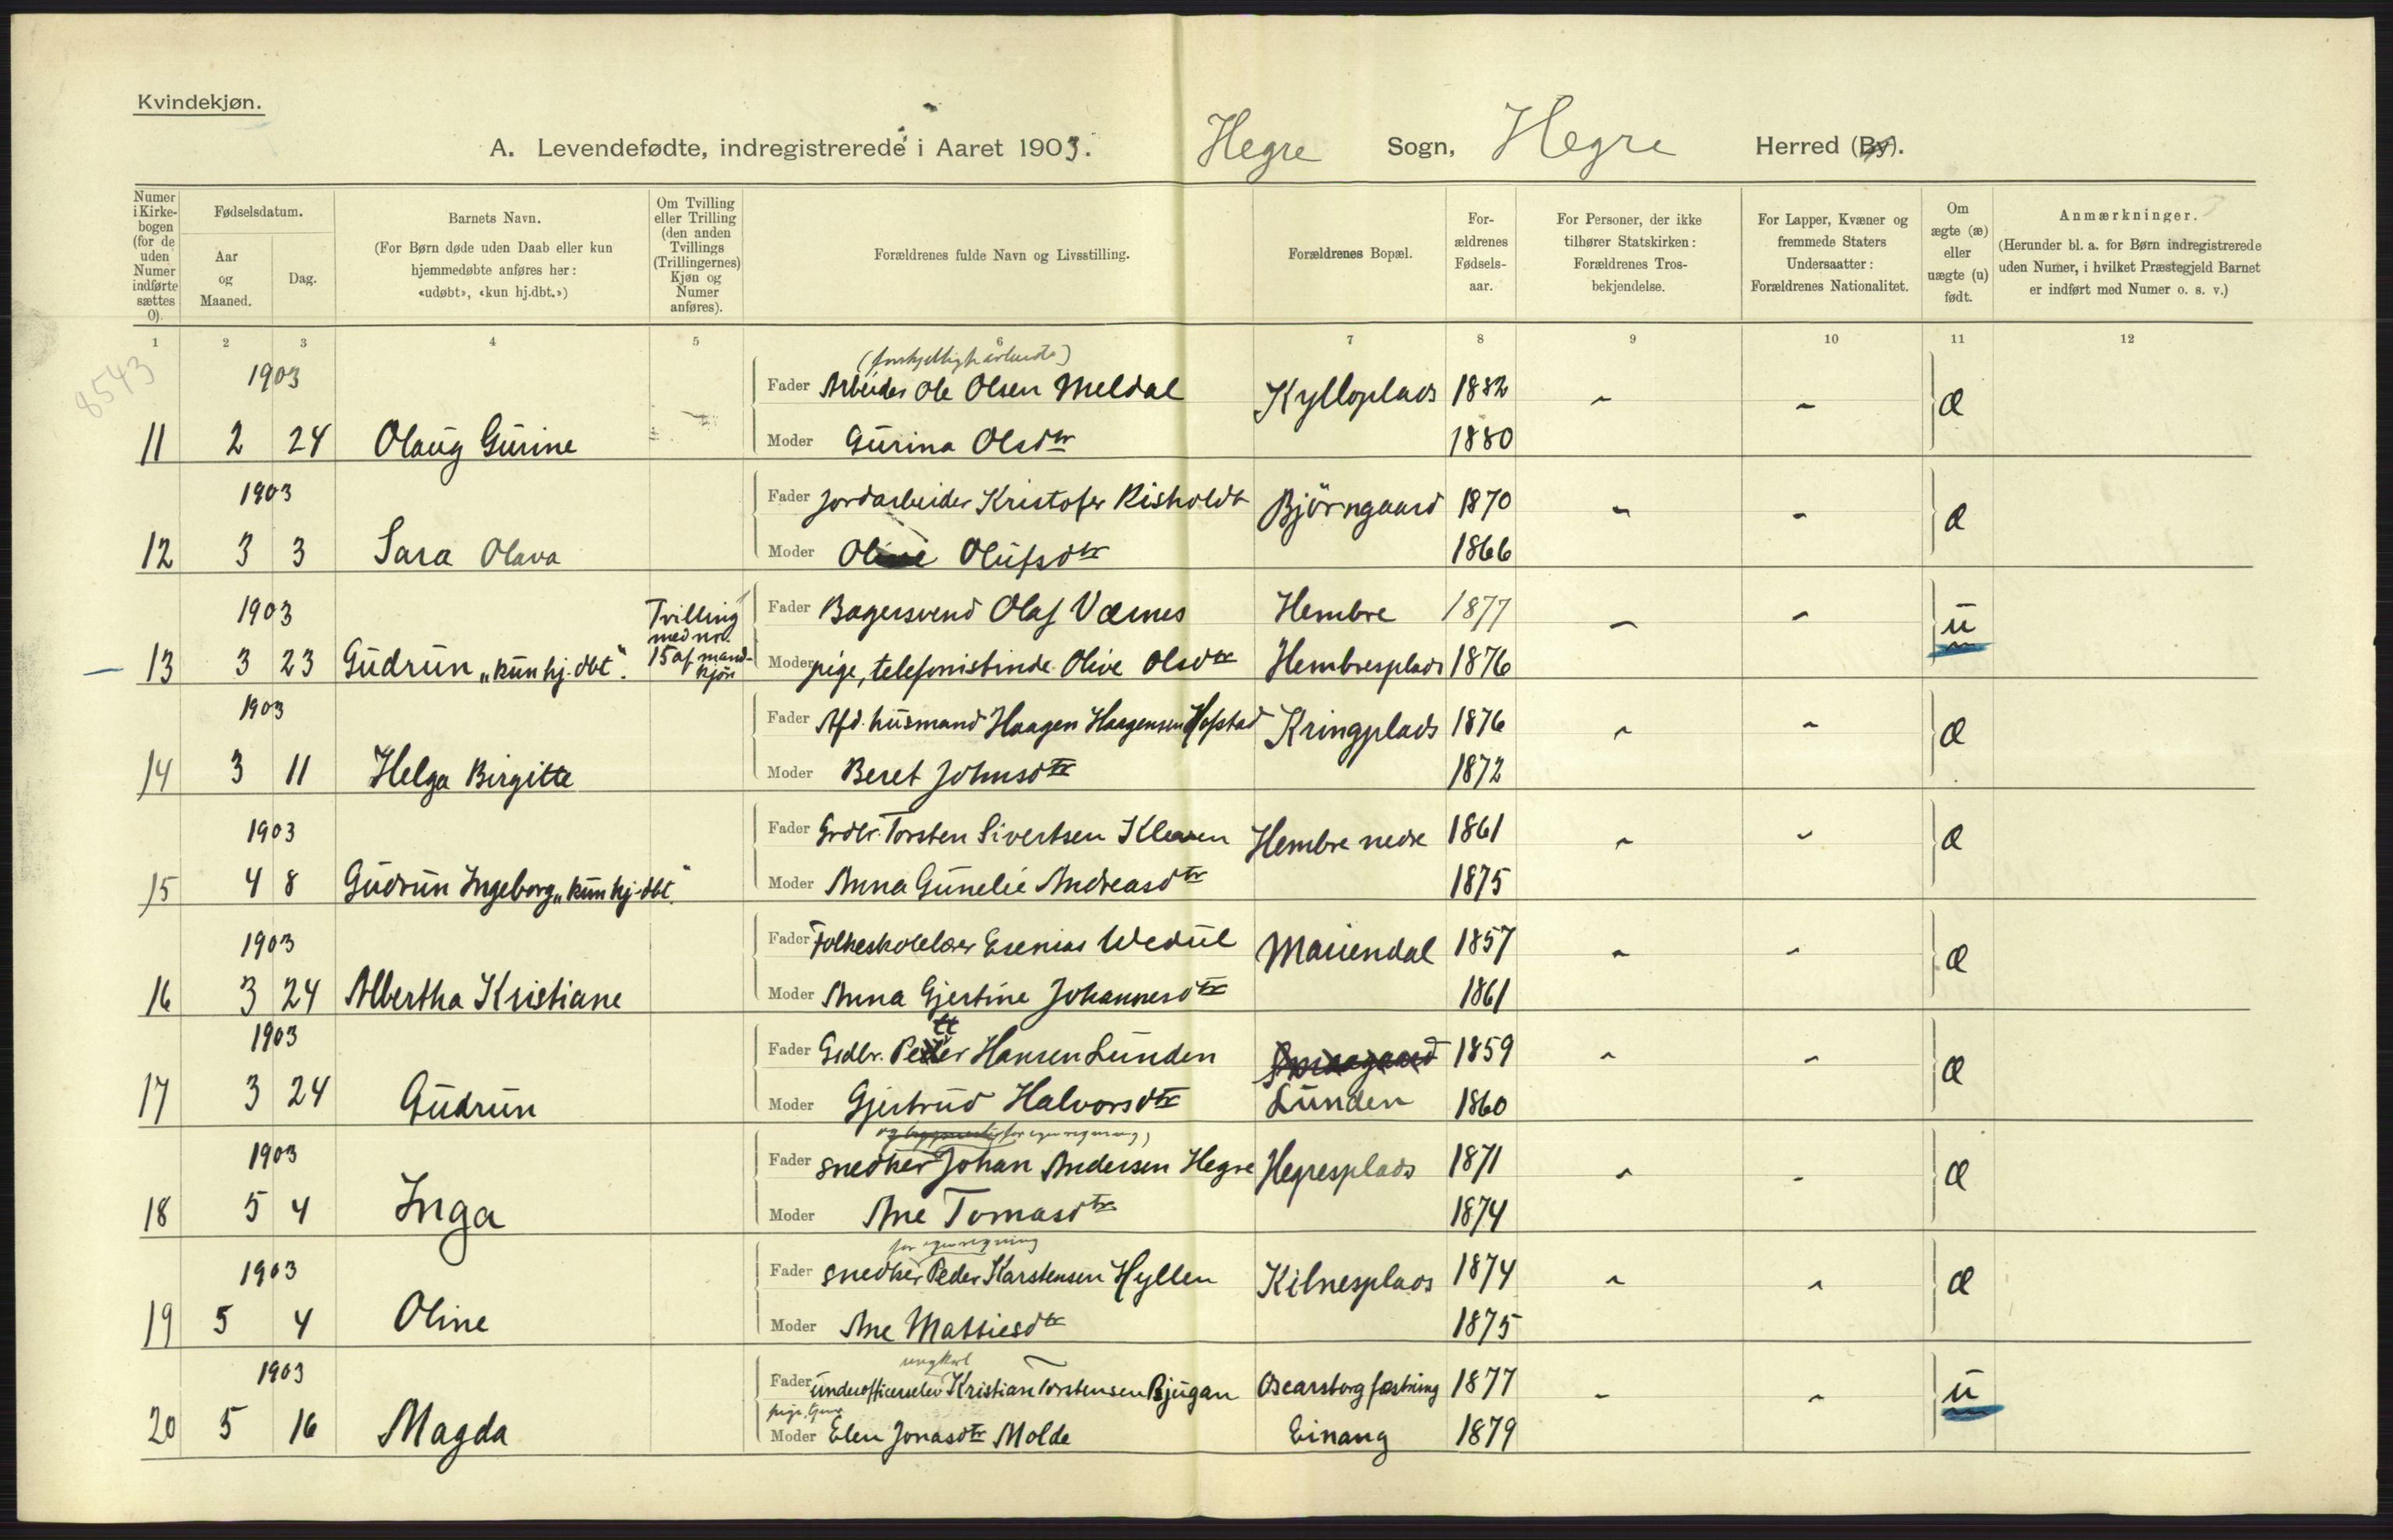 Kvindekjøn.
A. Levendefødte, indregistrerede i Aaret 1903. Hegre Sogn, Hegre Herred (By).
Numer i Kirkebogen (for de uden Numer indførte sættes 0).
Fødselsdatum.
Aar og Maaned.
Dag.
Barnets Navn.
(For Børn døde uden Daab eller kun hjemmedøbte anføres her: «udøbt», «kun hj.dbt.»)
Om Tvilling eller Trilling (den anden Tvillings (Trillingernes) Kjøn og Numer anføres).
Forældrenes fulde Navn og Livsstilling.
Forældrenes Bopæl.
Forældrenes Fødselsaar.
For Personer, der ikke tilhører Statskirken: Forældrenes Trosbekjendelse.
For Lapper, Kvæner og fremmede Staters Undersaatter: Forældrenes Nationalitet.
Om ægte (æ) eller uægte (u) født.
Anmærkninger.
(Herunder bl. a. for Børn indregistrerede uden Numer, i hvilket Præstegjeld Barnet er indført med Numer o. s. v.)
1 2 3 4 5 6 7 8 9 10 11 12
8543
1903 Fader Arbeider Ole Olsen Meldal Kylloplads 1882 æ
11 2 24 Olaug Gurine Moder Gurina Olsdtr 1880
1903 Fader Jordarbeider Kristofer Risholdt Björngaard 1870 æ
12 3 3 Sara Olava Moder Oline Olufsdtr 1866
1903 Tvilling med no. 15 af mandkjøn Fader Bagersvend Olaf Værnes Hembre 1877 u
13 3 23 Gudrun „kun hj. dbt". Moder pige, telefonistinde Olive Olsdtr Hembresplads 1876
1903 Fader Afd. husmand Haagen Haagensen Hofstad Kringplads 1876 æ
14 3 11 Helga Birgitte Moder Beret Johnsdtr 1872
1903 Fader Grdbr. Torsten Sivertsen Kleven Hembre nedre 1861 æ
15 4 8 Gudrun Ingeborg „kun hj. dbt." Moder Anna Gunelie Andreasdtr 1875
1903 Fader Folkeskolelærer Esenias Wedul Mariendal 1857 æ
16 3 24 Albertha Kristiane Moder Anna Gjertine Johannesdtr 1861
1903 Fader Grdbr. Petter Hansen Lunden 1859 æ
17 3 24 Gudrun Moder Gjertrud Halvorsdtr Lunden 1860
for egen regning)
1903 Fader snedker Johan Andersen Hegre Hegresplads 1871 æ
18 5 4 Inga Moder Ane Tomasdtr 1874
for egen regning
1903 Fader snedker Peder Karstensen Hyllen Kilnesplads 1874 æ
19 5 4 Oline Moder Ane Mathiesdtr 1875
ungkarl
1903 Fader underofficerselev Kristian Torstensen Bjugan Oscarsborg fæstning 1877 u
20 5 16 Magda Moder pige, Elen Jonasdtr Molde Einang 1879